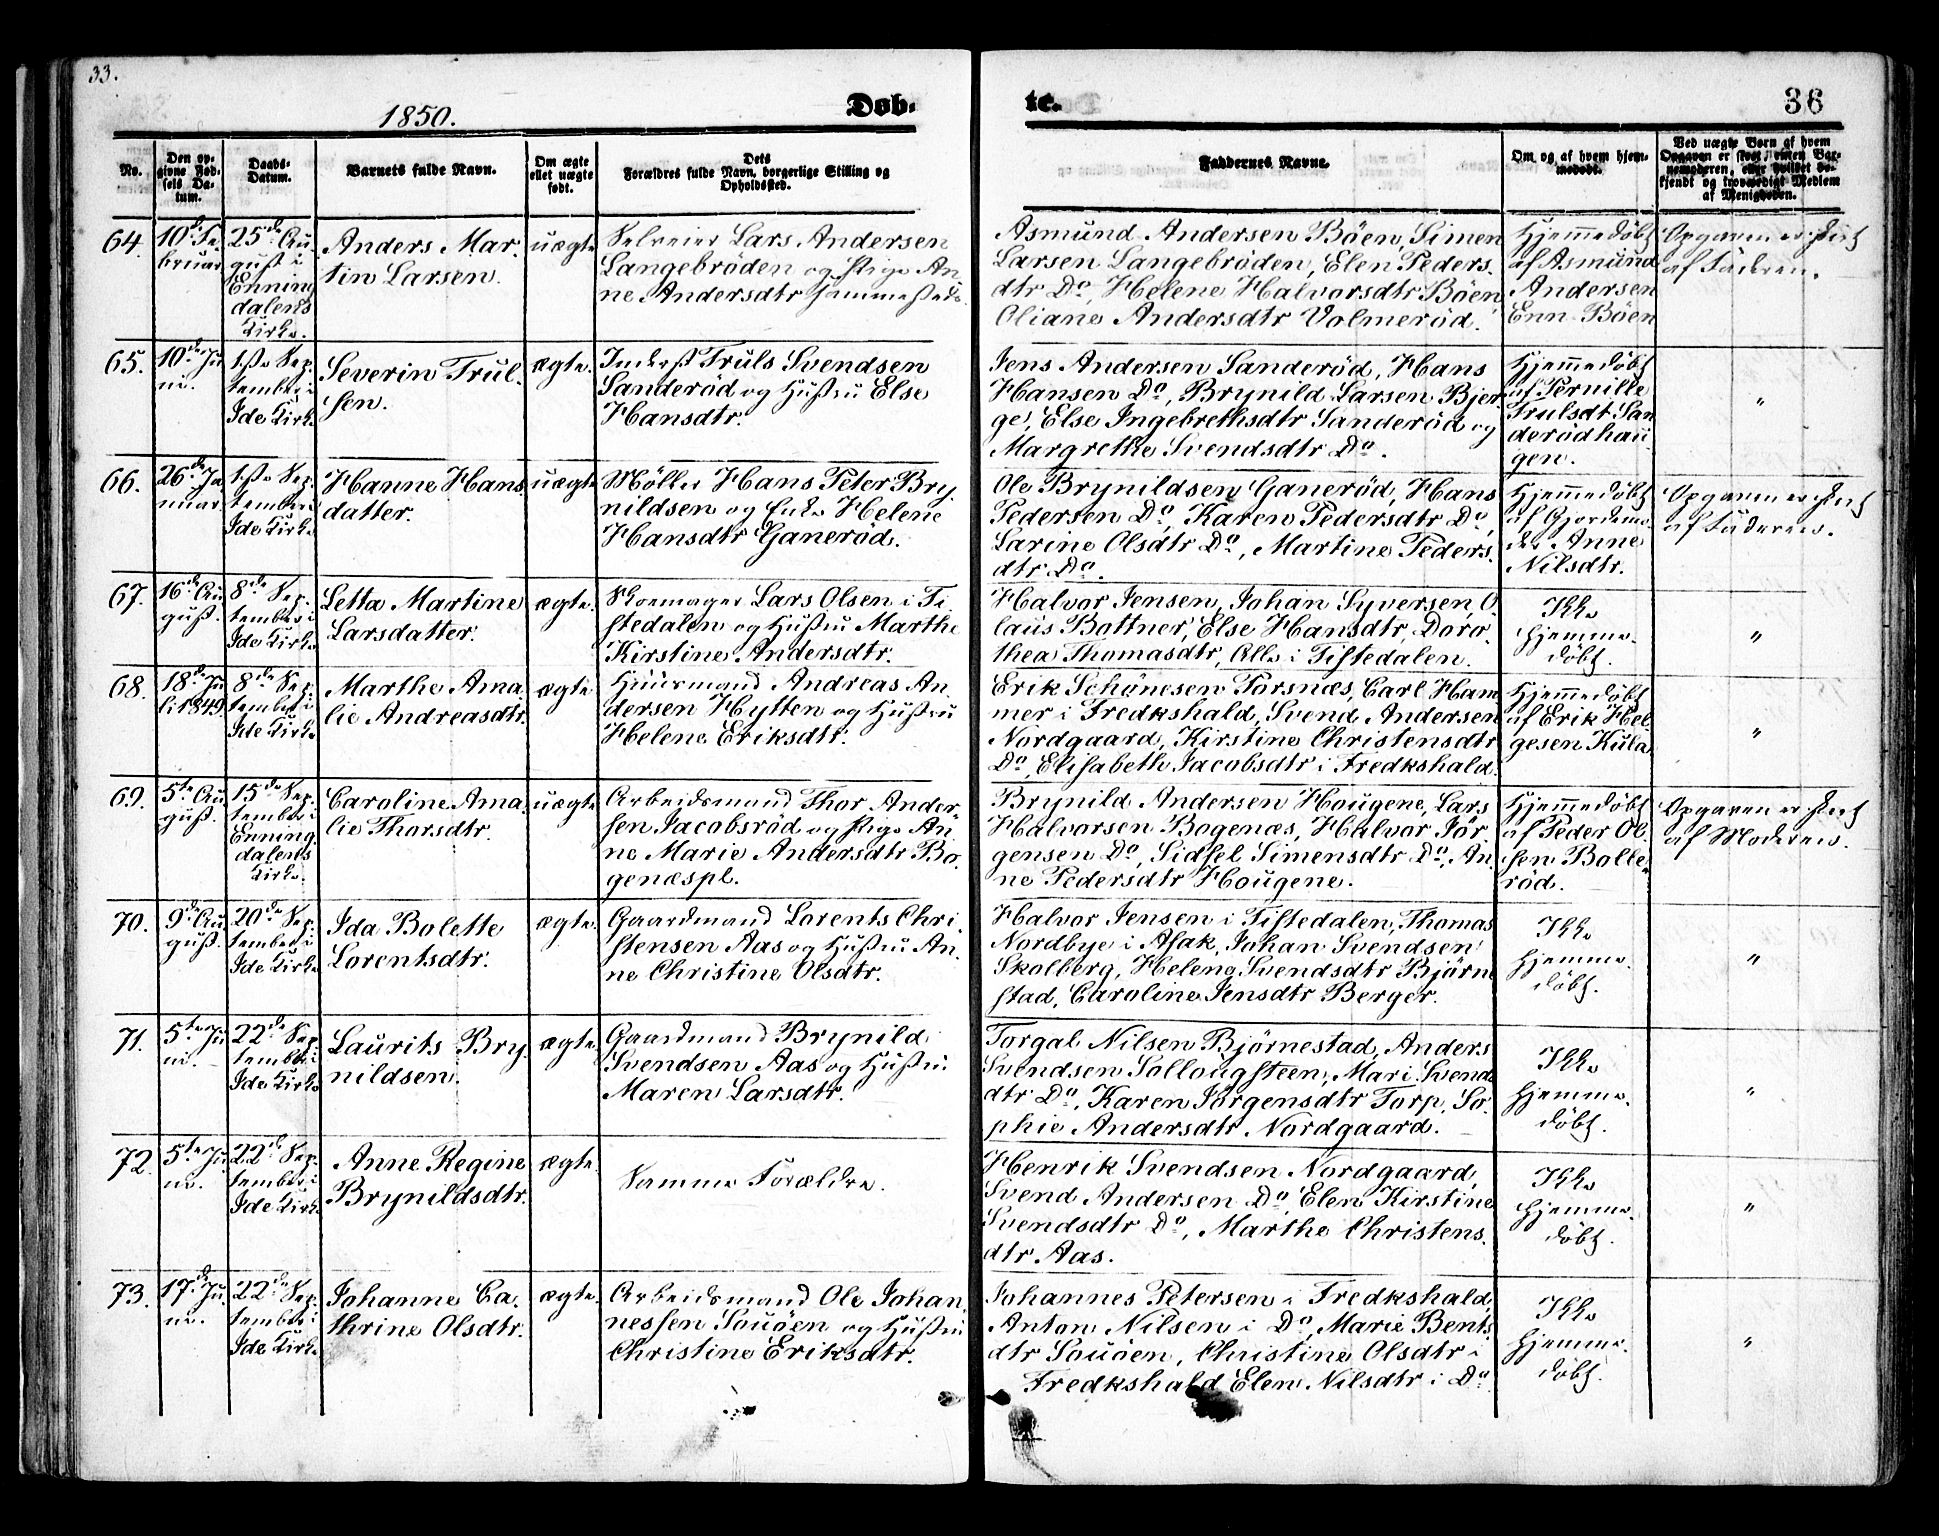 33.
1850.
Døb-
te.
36
No.
Den op-
givne Fød-
sels Da-
tum.
Daabs-
Datum.
Barnets fulde Navn.
Om ægte
ellet uægte
født.
Dets
Forældres fulde Navn, borgerlige Stilling og
Opholdssted.
Faddernes Navne.
Om og af hvem hjem-
medøbt.
Ved uægte Børn af hvem
Opgaven er skeet, enten Bar-
nemoderen, eller hvilket be-
kjendt og troværdigt Medlem
af Menigheden.
64.
10de Fe-
bruar
25de Au-
gust i
Enning
dalens
Kirke.
Anders Mar-
tin Larsen.
uægte
Selveier Lars Andersen
Langebröden og Pige An-
ne Andersdtr sammesteds.
Asmund Andersen Böen, Simen
Larsen Langebröden, Elen Peders-
dtr Do, Helene Halvorsdtr Böen
Oliane Andersdtr Volmeröd.
Hjemmedöbt
af Asmund
Andersen
Enn. Böen
Opgaven er skeet
af Faderen.
65.
10de Ju-
ni.
1ste Sep-
tember i
Ide Kirke
Severin Trul-
sen.
ægte.
Inderst Truls Svendsen
Sanderöd og Hustru Else
Hansdtr.
Jens Andersen Sanderöd, Hans
Hansen Do, Brynild Larsen Bjer-
ge, Else Ingebrethsdtr Sanderöd og
Margrethe Svendsdtr Do.
Hjemmedöbt
af Pernille
Trulsdt San
derödhau
gen.
"
66.
26de Ja
nuar
1ste Sep-
tember i
Ide Kirke
Hanne Hans
datter.
uægte
Möller Hans Peter Bry-
nildsen og Enke Helene
Hansdtr Ganeröd.
Ole Brynildsen Ganeröd, Hans
Pedersen Do, Karen Pedersdtr Do,
Larine Olsdtr Do, Martine Peders-
dtr Do.
Hjemmedöbt
af Gjordemo-
der Anne
Nilsdtr.
Opgaven er skeet
af Faderen.
67.
16de Au-
gust.
8de Sep-
tember i
Ide Kirke
Letta Martine
Larsdatter.
ægte.
Skomager Lars Olsen i Ti-
stedalen og Hustru Marthe
Kirstine Andersdtr.
Halvor Jensen, Johan Syversen, O-
laus Bottner, Else Hansdtr, Doro-
thea Thomasdtr, Alle i Tistedalen.
Ikke
hjemme-
döbt.
"
68.
18de Ju-
li 1849.
8de Sep-
tember i
Ide Kirke
Marthe Ama
lie Andreasdtr.
ægte
Huusmand Andreas An-
dersen Hytten og Hustru
Helene Eriksdtr.
Erik Schönesen Torsnæs, Carl Ham
mer i Fredkshald, Svend Andersen
Nordgaard, Kirstine Christensdtr
Do, Elisabeth Jacobsdtr i Fredkshald.
Hjemmedöbt
af Erik Hel-
gesen Kula
"
69.
5te Au-
gust.
15de Sep-
tember i
Enning-
dalens
Kirke.
Caroline Ama
lie Thorsdtr.
uægte
Arbeidsmand Thor Ander-
sen Jacobsröd og Pige An-
ne Marie Andersdtr Bo-
genæspl.
Brynild Andersen Hougene, Lars
Halvorsen Bogenæs, Halvor Jör-
gensen Do, Sidsel Simensdtr Do, An-
ne Pedersdtr Hougene.
Hjemmedöbt
af Peder Ol-
sen Bolle-
röd.
Opgaven er skeet
af Moderen.
70.
9de Au-
gust.
20de Sep-
tember i
Ide Kirke
Ida Bolette
Lorentsdtr.
ægte.
Gaardmand Lorents Chri-
stensen Aas og Hustru An-
ne Christine Olsdtr.
Halvor Jensen i Tistedalen, Thomas
Nordbye i Asak, Johan Svendsen
Skolberg, Helene Svendsdtr Björne
stad, Caroline Jensdtr Berger.
Ikke
hjemme-
döbt.
"
71.
5te Ju-
ni.
22de Sep-
tember i
Ide Kirke
Laurits Bry-
nildsen.
ægte.
Gaardmand Brynild
Svendsen Aas og Hustru
Maren Larsdtr.
Torgal Nilsen Björnestad, Anders
Svendsen Sollougsteen, Mari Svends
dtr Do, Karen Jörgensdtr Torp, So-
phie Andersdtr Nordgaard.
Ikke
hjemme-
döbt.
"
72.
5te Ju-
ni.
22de Sep-
tember i
Ide Kirke
Anne Regine
Brynildsdtr.
ægte.
Samme Forældre.
Henrik Svendsen Nordgaard,
Svend Andersen Do, Elen Kirstine
Svendsdtr Do, Marthe Christens-
dtr Aas.
Ikke
hjemme-
döbt.
"
73.
17de Ju-
ni.
22de Sep-
tember i
Ide Kirke
Johanne Ca-
thrine Olsdtr.
ægte.
Arbeidsmand Ole Johan-
nessen Souöen og Hustru
Christine Eriksdtr.
Johannes Petersen i Fredkshald,
Anton Nilsen i Do, Marie Bents-
dtr Souöen, Christine Olsdtr i
Fredkshald Elen Nilsdtr i Do.
Ikke
hjemme-
döbt.
"